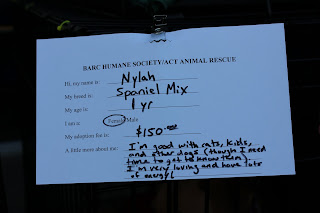 BARC HUMANE SOCIETY/ACT ANIMAL RESCUE
Hi, my name is: Nylah
My breed is: Spaniel Mix
My age is: 1 yr
I am a: Female/Male
My adoption fee is: $150.00
A little more about me: I'm good with cats, kids,
and other dogs (though I need
time to get to know them).
I'm very loving and have lots
of energy!